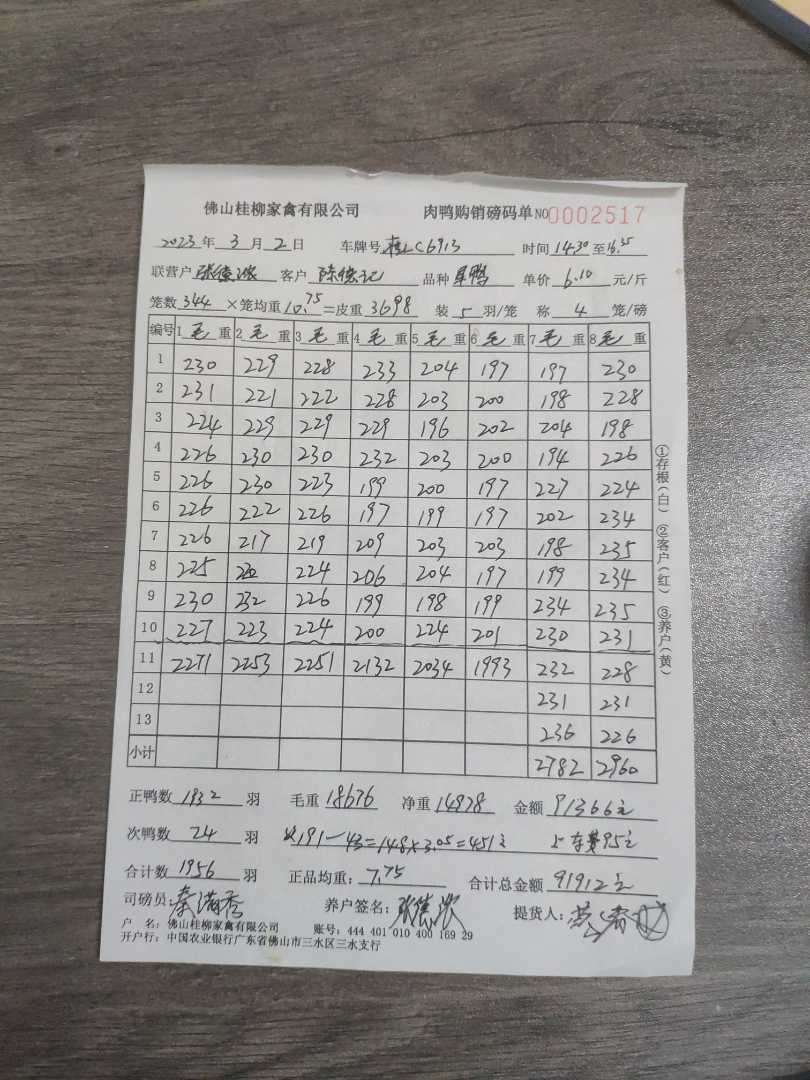 佛山桂柳家禽有限公司 肉鸭购销磅码单 NO 0002517
2023 年 3 月 2 日 车牌号 桂LC6913 时间 14:30 至 16:35
联营户 张德浓 客户 陈德记 品种 单价 6.10 元/斤
笼数 344 ×笼均重 10.75 =皮重 3698 装 5 羽/笼 称 4 笼/磅
编号 1 毛 重 2 毛 重 3 毛 重 4 毛 重 5 毛 重 6 毛 重 7 毛 重 8 毛 重
1 230 229 228 233 204 197 197 230
2 231 221 222 228 203 200 198 228
3 224 229 229 229 196 202 204 198
4 226 230 230 232 203 200 194 226
5 226 230 223 199 200 197 227 224
6 226 222 226 197 199 197 202 234
7 226 217 219 209 203 203 198 235
8 225 220 224 206 204 197 199 234
9 230 232 226 199 198 199 234 235
10 227 223 224 200 224 201 230 231
11 2271 2253 2251 2132 2034 1993 232 228
12 231 231
13 236 226
小计 2782 2960
①存根(白) ②客户(红) ③养户(黄)
正鸭数 1932 羽 毛重 18676 净重 14978 金额 91366元
次鸭数 24 羽 191-43=148×3.05=451元 95元
合计数 1956 羽 正品均重: 7.75 合计总金额 91912元
司磅员: 秦满秀 养户签名: 张德浓 提货人:
户 名: 佛山桂柳家禽有限公司 账号: 444 401 010 400 169 29
开户行: 中国农业银行广东省佛山市三水区三水支行